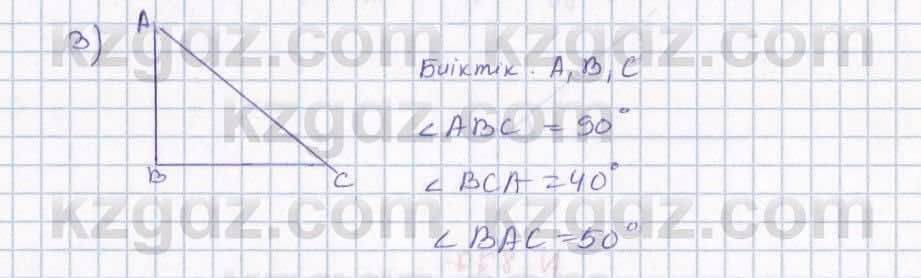 3)
A
B
C
Биіктік. A, B, C
∠ABC = 90°
∠BCA = 40°
∠BAC = 50°
kzgdz.com kzgdz.com
kzgdz.com
kzgdz.com kzgdz.com